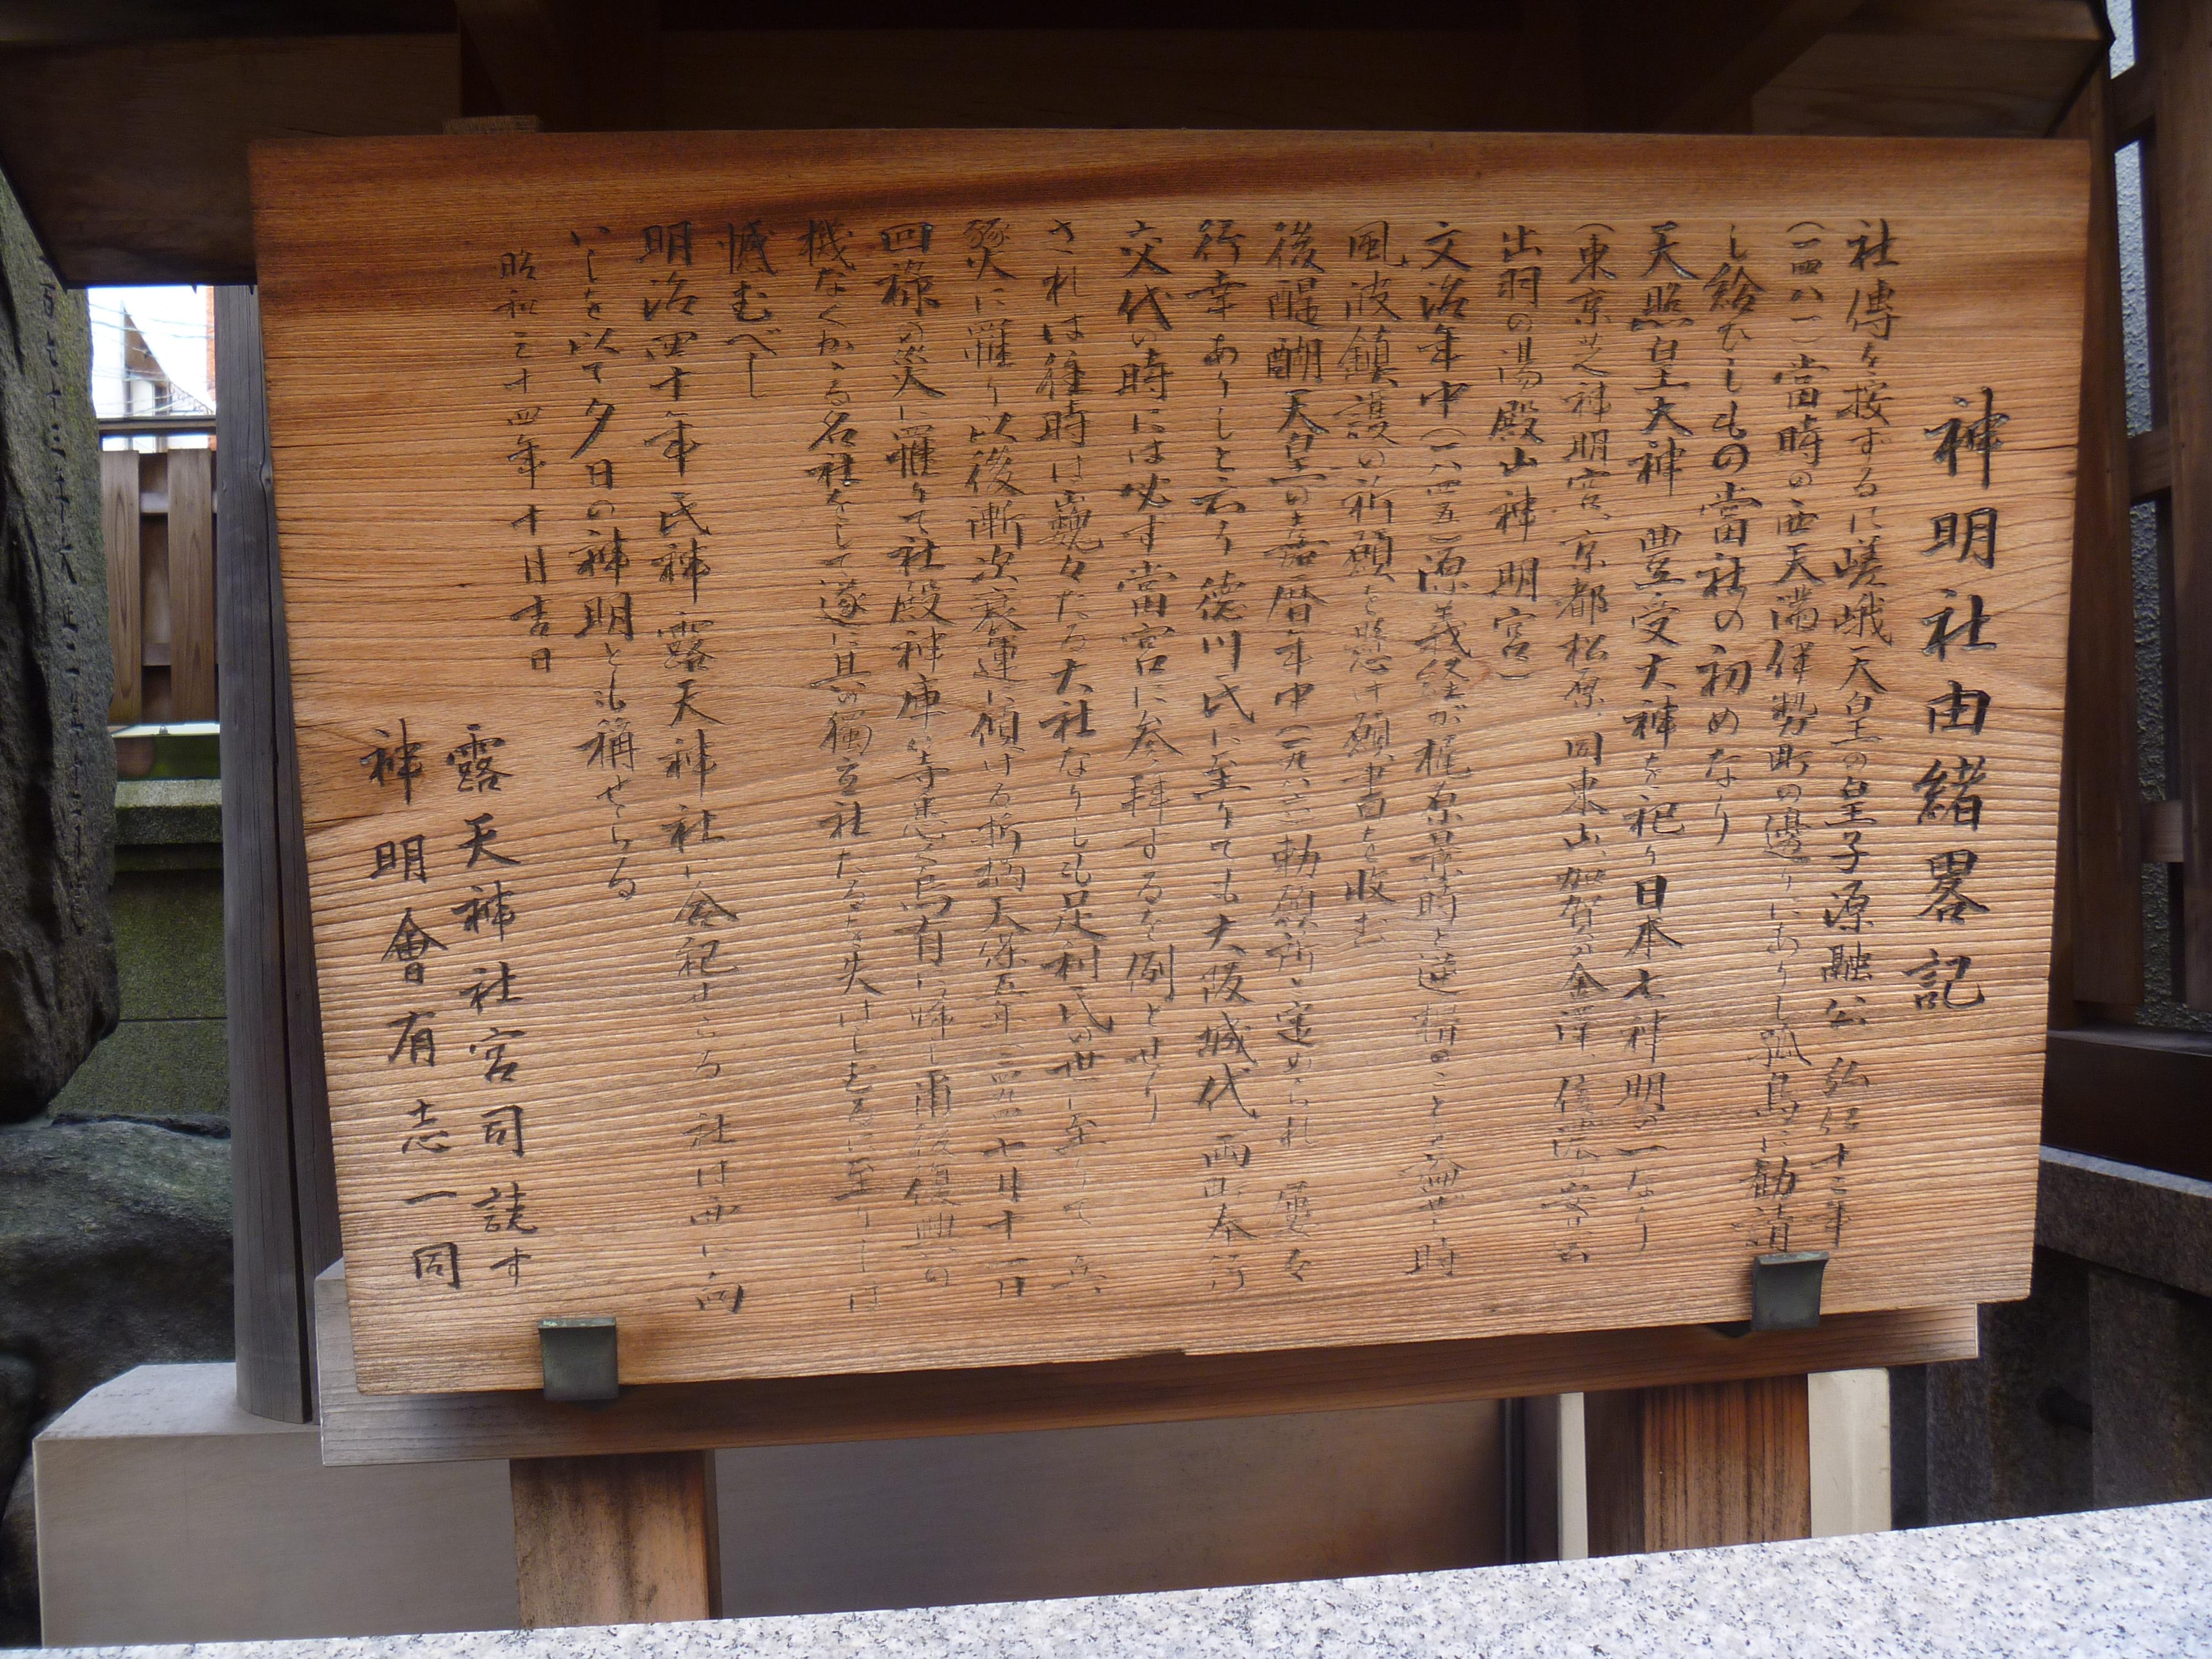 神明社由緒畧記
社傳を按ずるに嵯峨天皇の皇子源融公 弘仁十二年
(一四八一)當時の西天満伊勢町の邊りにありし孤島に勧請
し給ひしもの當社の初めなり
天照皇大神 豊受大神を祀り日本七神明の一なり
(東京芝神明宮、京都松原、同東山、加賀の金澤、信濃の安曇
出羽の湯殿山神明宮)
文治年中(一八四五)源義経が梶原景時と逆櫓のこと 時
風波鎮護の祈願を懸け願書を收む
後醍醐天皇の嘉暦年中(一九八六)勅願所と定められ 屢々
行幸ありしと云う 徳川氏に至りても大阪城代 両町奉行
交代の時には必ず當宮に参拝するを例とせり
されは往時は巍々たる大社なりしも足利氏の世に至りて 兵
燹火に罹り以後漸次衰運に傾ける折柄天保五年 二四九四 七月十一日
四祿の災に罹りて社殿神庫等悉く烏有に帰し爾後復興の
機なくかゝる名社をして遂に其の獨立社たるを失はしむるに至りしは
憾むべし
明治四十年氏神露天神社に合祀せらる 社は西に向
いしを以て夕日の神明とも稱せらる
昭和三十四年十月吉日
露天神社宮司 誌す
神明會有志一同